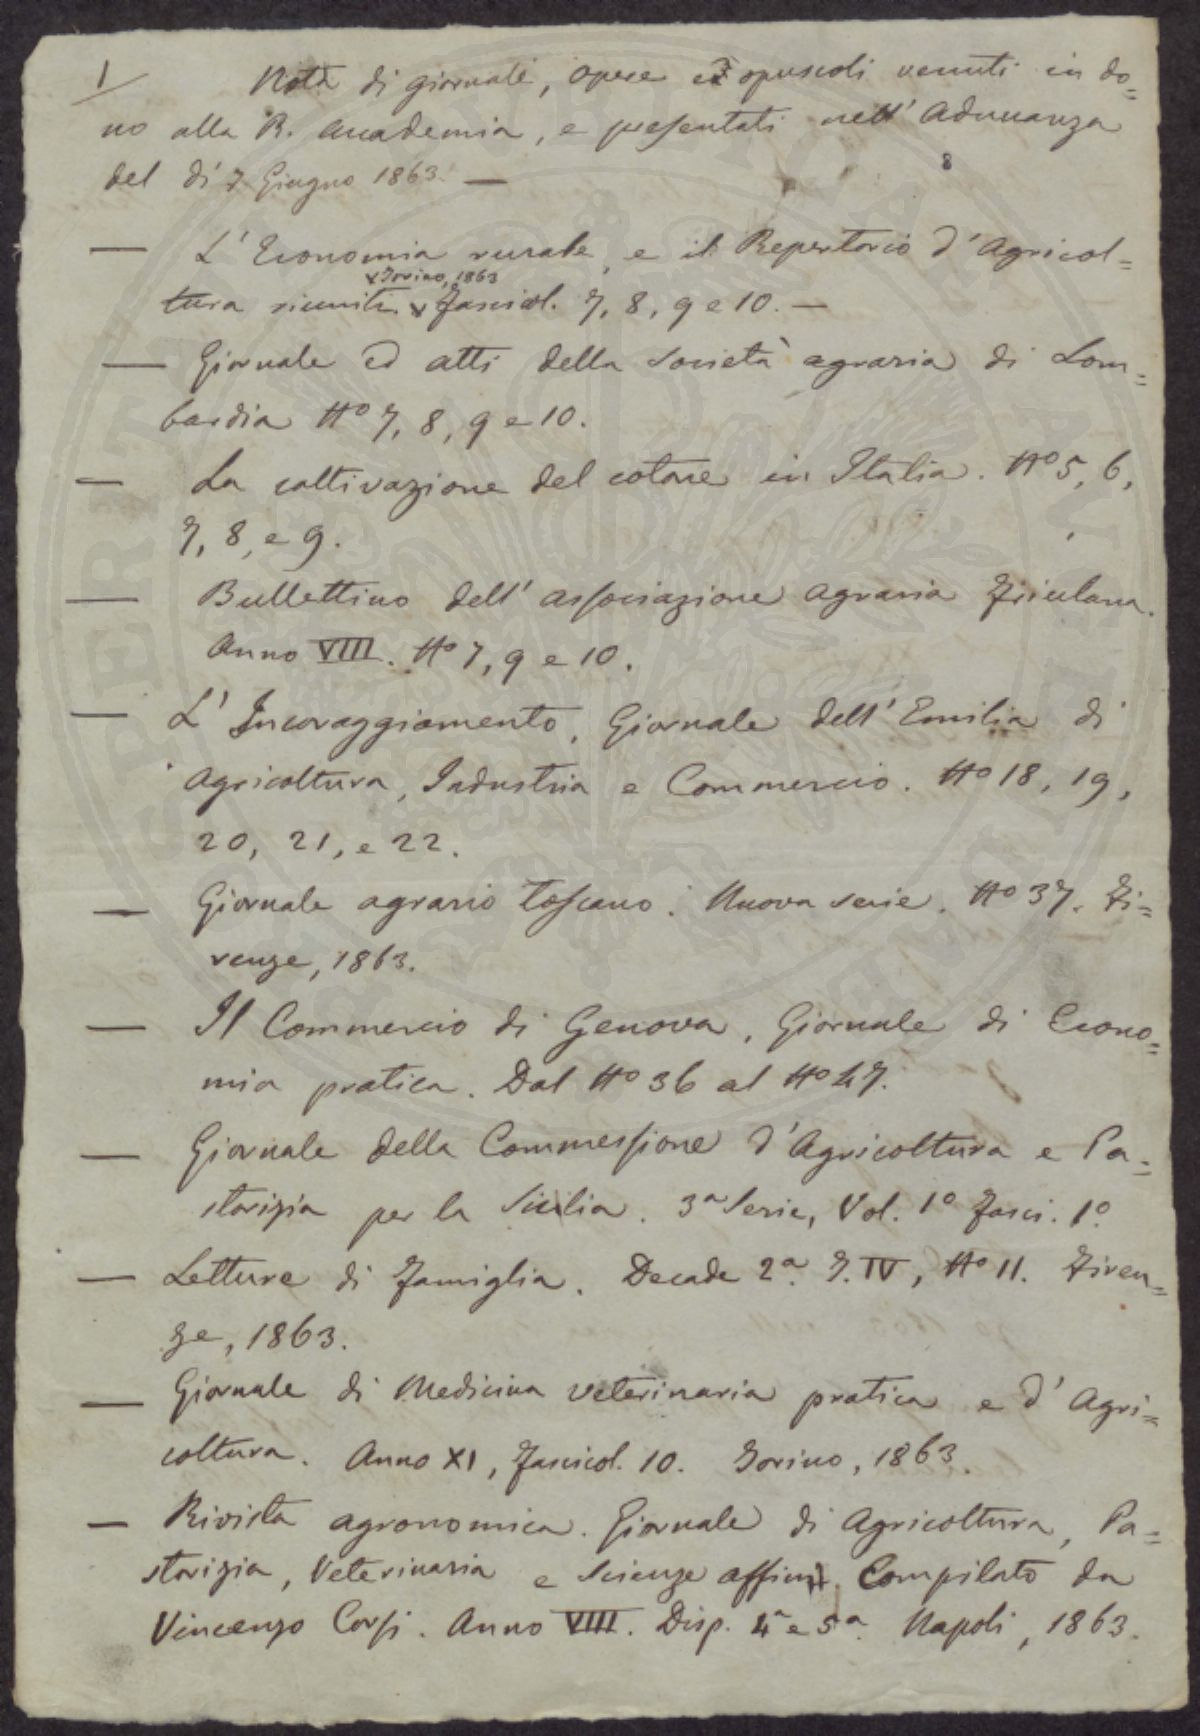 1
Nota di giornali, opere ed opuscoli venuti in do=
no alla R. Accademia, e presentati nell' Adunanza
del dì 7 Giugno 1863. —
8
— L' Economia rurale, e il Repertorio d' Agricol=
Torino, 1863
tura riuniti. Fascicol. 7, 8, 9 e 10. —
— Giornale ed atti della Società agraria di Lom=
bardia No 7, 8, 9 e 10.
— La coltivazione del cotone in Italia. No 5, 6,
7, 8, e 9.
— Bullettino dell' associazione agraria Friulana.
Anno VIII. No 7, 9 e 10.
— L' Incoraggiamento, Giornale dell' Emilia di
Agricoltura, Industria e Commercio. No 18, 19,
20, 21, e 22.
— Giornale agrario toscano. Nuova serie. No 37. Fi=
renze, 1863.
— Il Commercio di Genova, Giornale di Econo=
mia pratica. Dal No 36 al No 47.
— Giornale della Commessione d' Agricoltura e Pa=
storizia per la Sicilia. 3a Serie, Vol. 1o Fasci. 1o.
— Letture di Famiglia. Decade 2a. T. IV, No 11. Firen=
ze, 1863.
— Giornale di Medicina veterinaria pratica e d' Agri=
coltura. Anno XI, Fascicol. 10. Torino, 1863.
— Rivista agronomica. Giornale di Agricoltura, Pa=
storizia, Veterinaria e Scienze affini. Compilato da
Vincenzo Corsi. Anno VIII. Disp. 4a e 5a. Napoli, 1863.